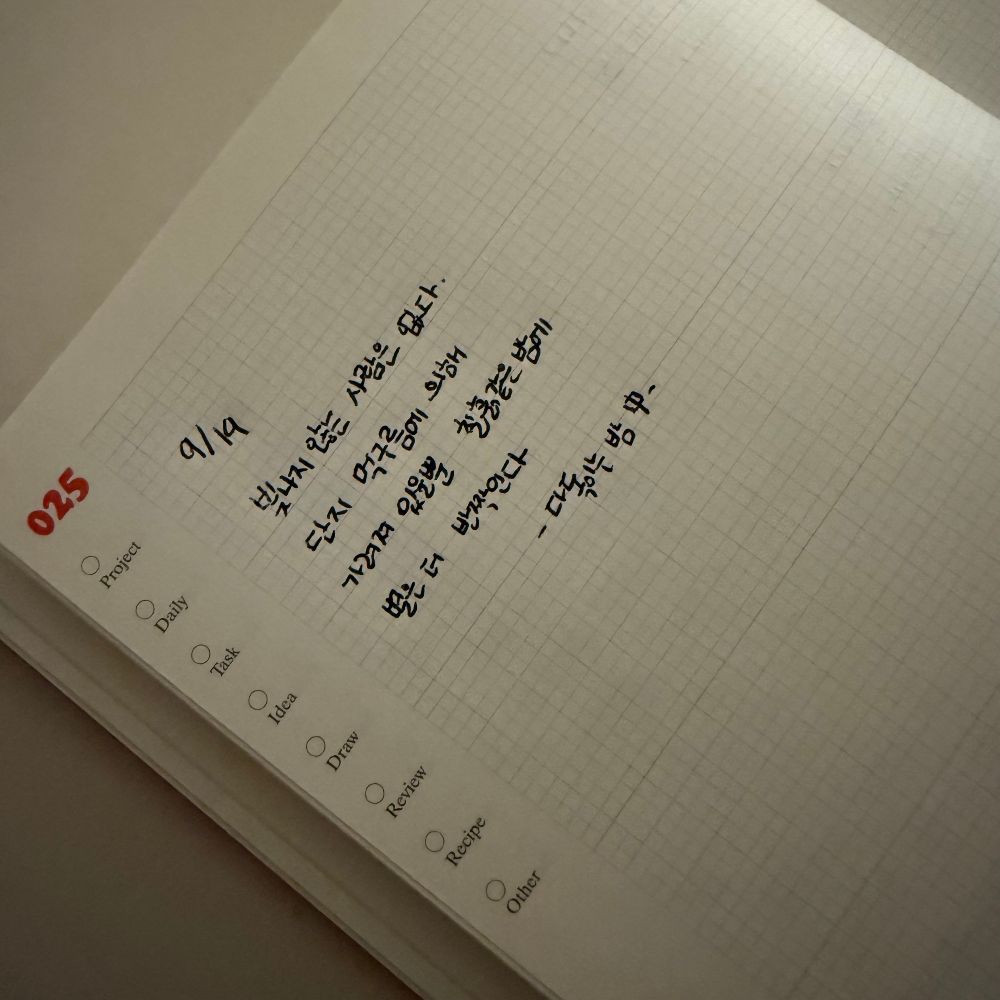 025
Project
Daily
Task
Idea
Draw
Review
Recipe
Other
9/19
빛나지 않는 사람은 없다.
단지 먹구름에 의해
가려져 있을뿐 칠흙같은 밤에
별은 더 반짝인다
- 다독이는 밤 中.